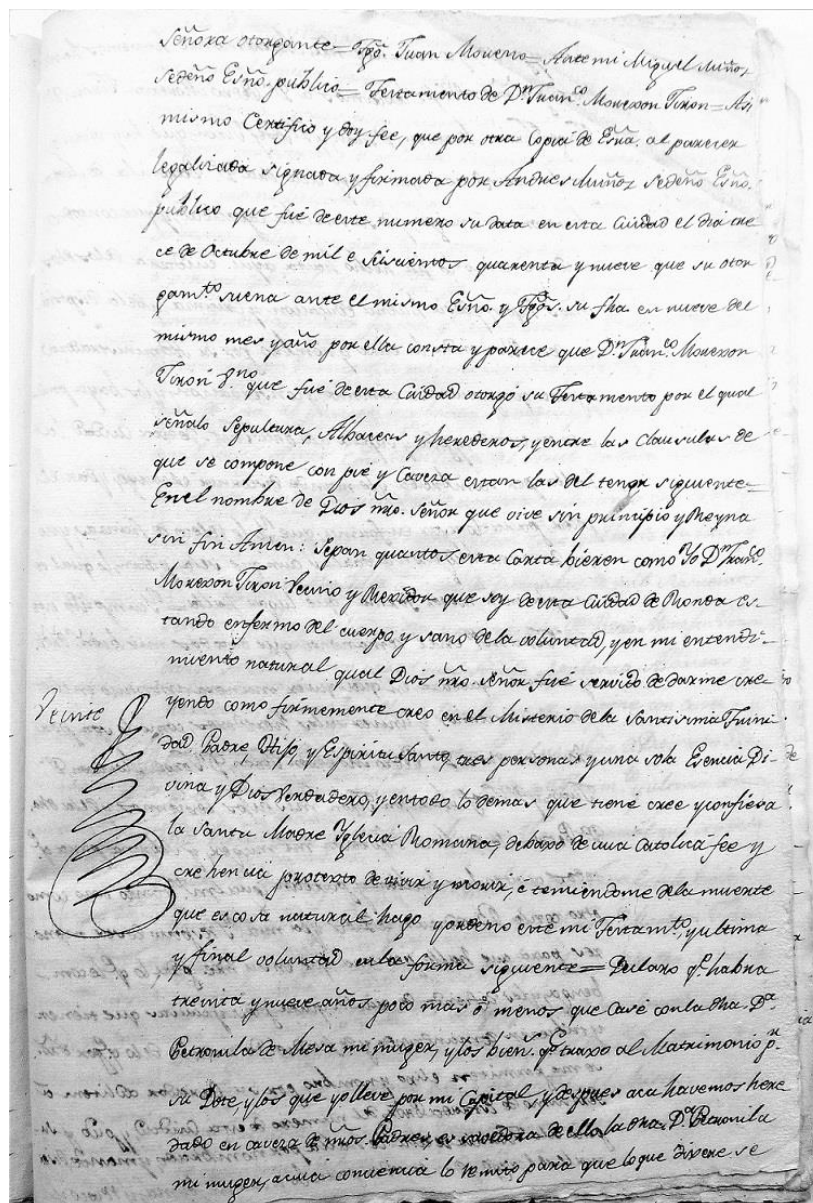 señora otorgante = Tgo. Juan Moreno = Ante mi Miguel Muñoz
sedeño Esño. publico = Testamento de Dn. Franco. Morexon Tixon = Asi
mismo Certifico y doy fee, que por otra Copia de Esña. al parecer
legalizada signada y firmada por Andres Muñoz sedeño Esño.
publico que fué de este numero su data en esta Ciudad el dia tre
ce de Octubre de mil e seiscientos quarenta y nueve que su otor
gamto. suena ante el mismo Esño. y Tgos. su fha en nueve del
mismo mes y año por ella consta y parece que Dn. Franco. Morexon
Tixon Vno. que fué de esta Ciudad otorgó su Testamento por el qual
señalo Sepultura, Albaceas y herederos, y entre las Clausulas de
que se compone con pie y Caveza estan las del tenor siguiente =
En el nombre de Dios nro. señor que vive sin principio y Reyna
sin fin Amen: Sepan quantos esta Carta bieren como Yo Dn. Franco.
Morexon Tixon Vecino y Rexidor que soy de esta Ciudad de Ronda es-
tando enfermo del cuerpo y sano de la voluntad, y en mi entendi-
miento natural qual Dios nro. señor fué servido de darme cre-
Veinte
yendo como firmemente creo en el Misterio de la Santisima Trini-
dad, Padre, Hijo, y Espiritu Santo, tres personas y una sola Esencia Di-
vina y Dios Verdadero, y en todo lo demas que tiene cree y confiesa
la Santa Madre Yglecia Romana, debaxo de cuia Catolica fee y
crehencia protexto de vivir y morir, é temiendome de la muerte
que es cosa natural hago y ordeno este mi Testamto., y ultima
y final voluntad en la forma siguiente = Declaro qe. habra
treinta y nueve años poco mas ó menos que Casé con la dha. Da.
Petronila de Mesa mi muger, y los bien.s qe. traxo al Matrimonio pr.
su Dote, y los que yo lleve por mi Capital, y despues aca havemos here
dado en caveza de nros. Padres, es savedora de ello la dha. Da. Petronila
mi muger, a cuia conciencia lo remito para que lo que dixere se